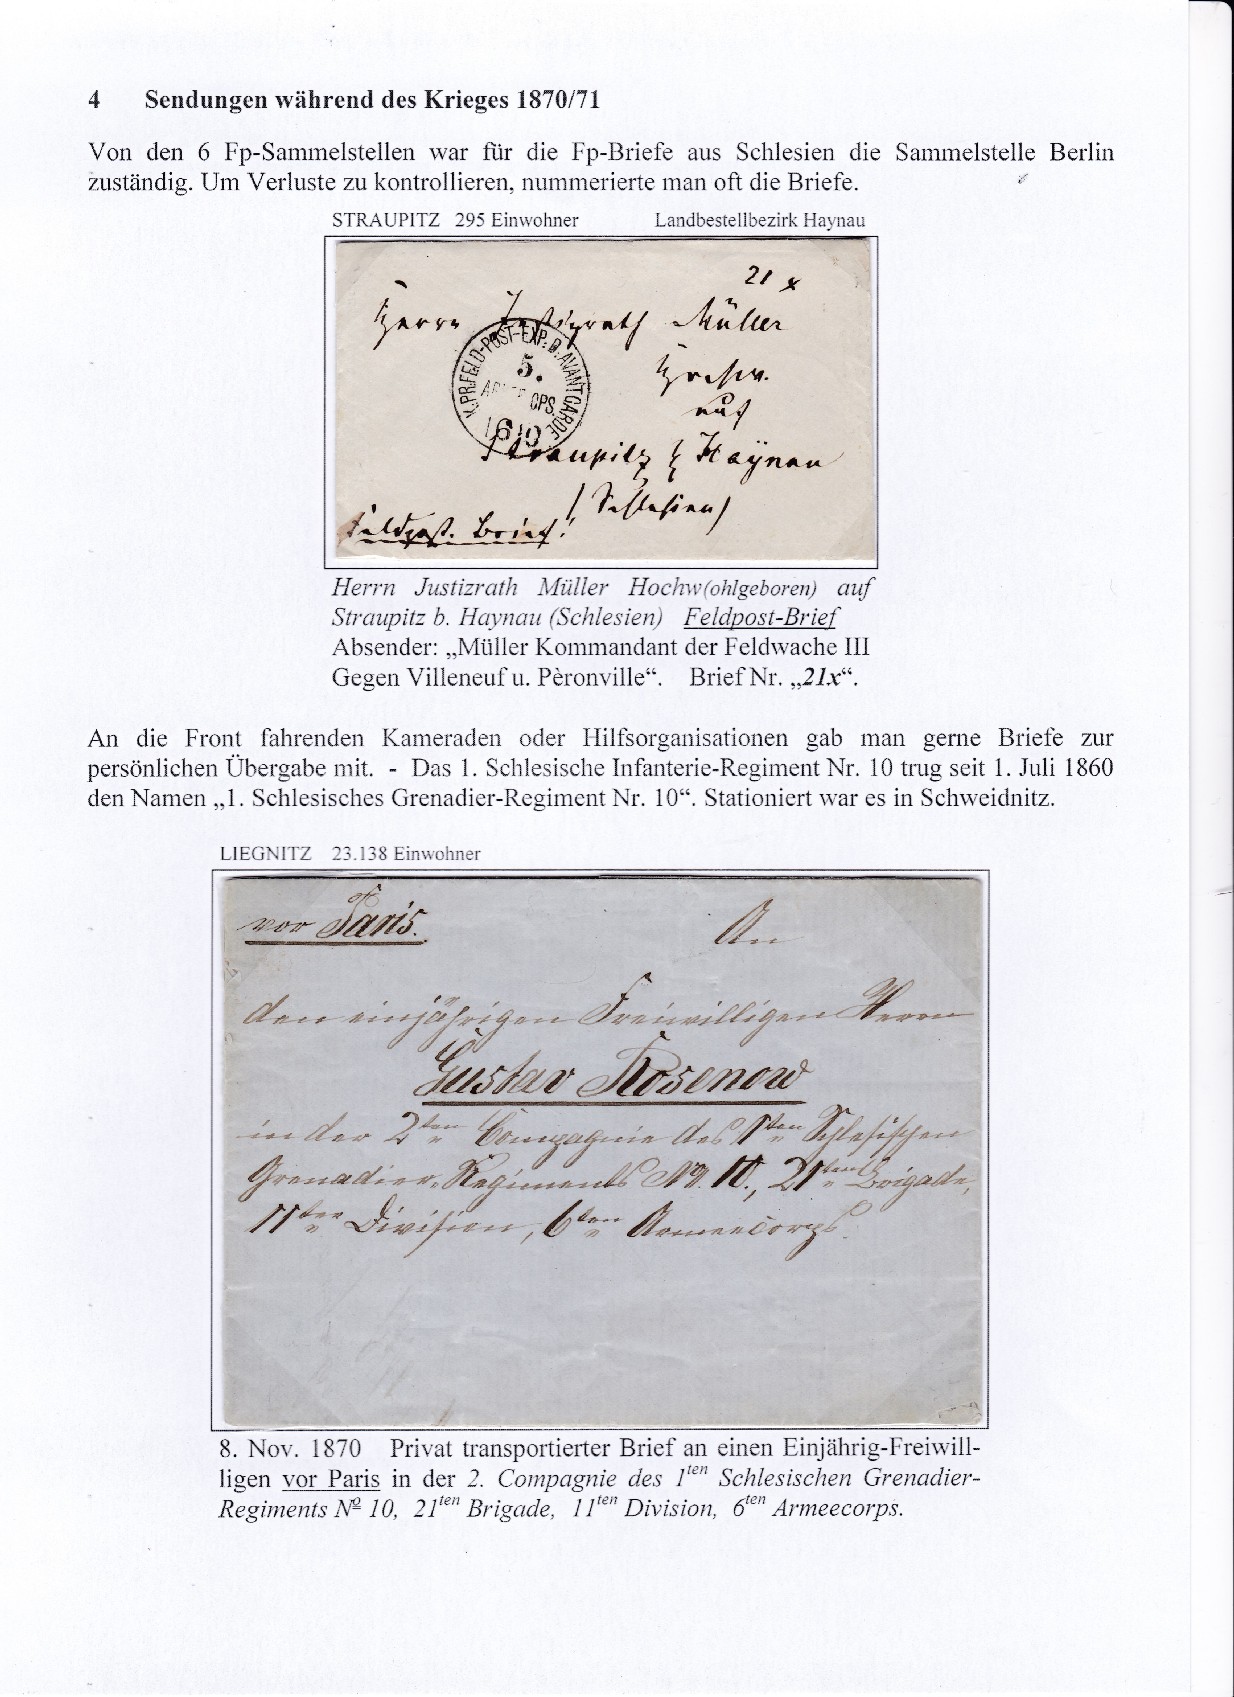 4 Sendungen während des Krieges 1870/71
Von den 6 Fp-Sammelstellen war für die Fp-Briefe aus Schlesien die Sammelstelle Berlin
zuständig. Um Verluste zu kontrollieren, nummerierte man oft die Briefe.
STRAUPITZ 295 Einwohner Landbestellbezirk Haynau
21 x
Herrn Justizrath Müller
Hochw.
auf
Straupitz b Haÿnau
(Schlesien)
Feldpost-Brief!
K.PR.FELD-POST-EXP.D.AVANTGARDE
5.
CPS.
16 10
Herrn Justizrath Müller Hochw(ohlgeboren) auf
Straupitz b. Haynau (Schlesien) Feldpost-Brief
Absender: „Müller Kommandant der Feldwache III
Gegen Villeneuf u. Pèronville“. Brief Nr. „21x“.
An die Front fahrenden Kameraden oder Hilfsorganisationen gab man gerne Briefe zur
persönlichen Übergabe mit. - Das 1. Schlesische Infanterie-Regiment Nr. 10 trug seit 1. Juli 1860
den Namen „1. Schlesisches Grenadier-Regiment Nr. 10“. Stationiert war es in Schweidnitz.
LIEGNITZ 23.138 Einwohner
vor Paris.
An
den einjährigen Freiwilligen Herrn
Gustav Rosenow
in der 2ten Compagnie des 1ten Schlesischen
Grenadier-Regiments No. 10., 21ten Brigade,
11ten Division, 6ten Armeecorps.
8. Nov. 1870 Privat transportierter Brief an einen Einjährig-Freiwill-
ligen vor Paris in der 2. Compagnie des 1ten Schlesischen Grenadier-
Regiments № 10, 21ten Brigade, 11ten Division, 6ten Armeecorps.